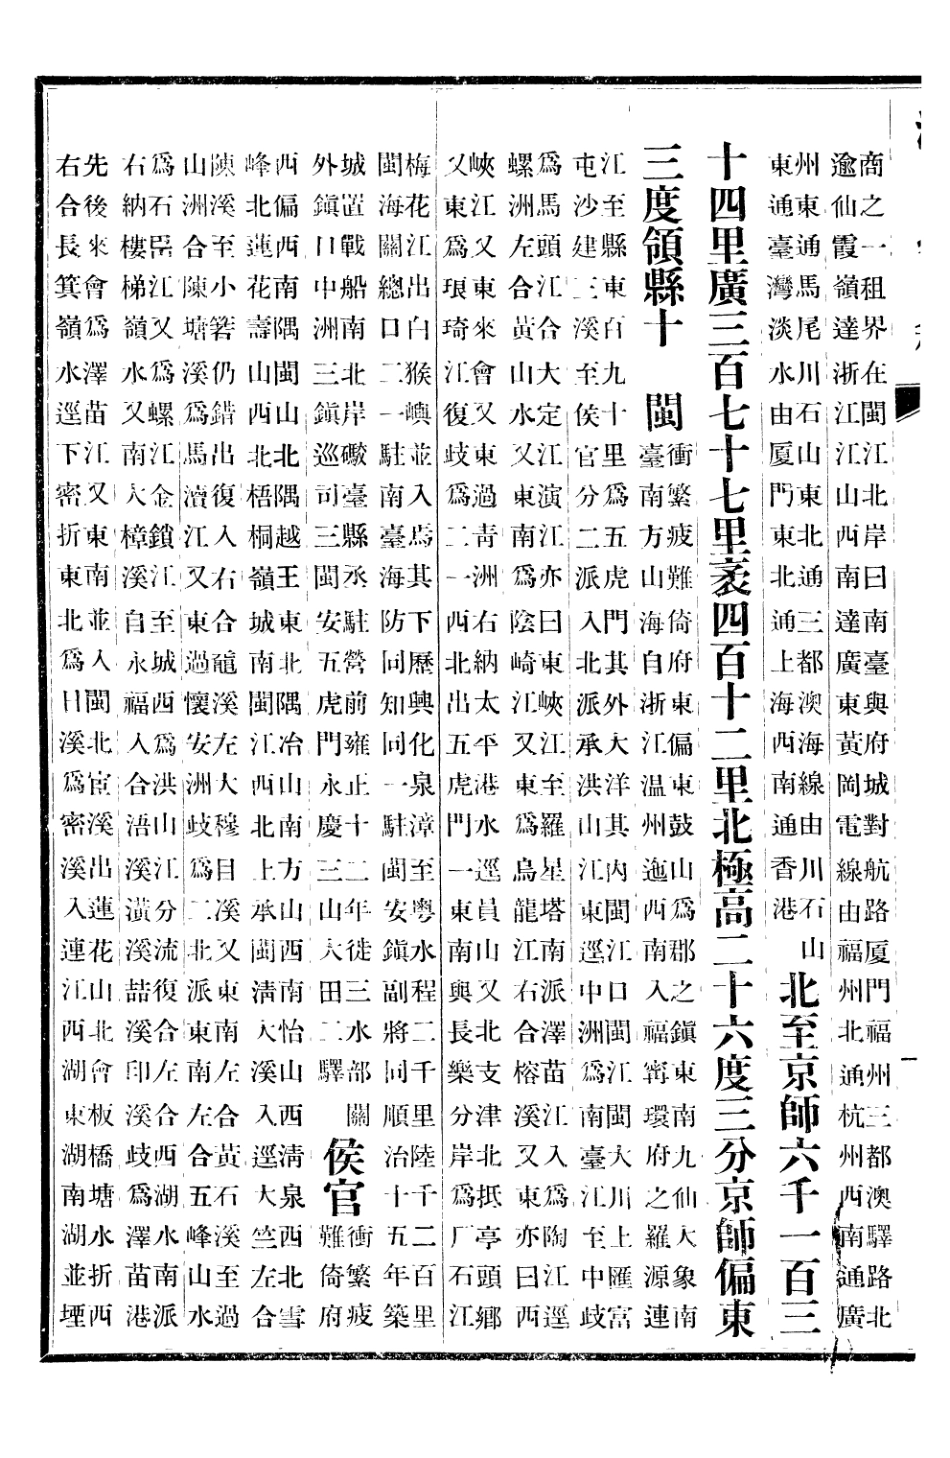 商之一租界在閩江北岸曰南臺與府城對航路廈門福州三都澳驛路北
逾仙霞嶺達浙江江山西南達廣東黃岡電線由福州北通杭州西南通廣
州東通馬尾川石山東北通三都澳海線由川石山
東通臺灣淡水由廈門東北通上海西南通香港
北至京師六千一百三
十四里廣三百七十七里袤四百十二里北極高二十六度三分京師偏東
三度領縣十　閩
衝繁疲難倚府東偏東鼓山為郡之鎮東南九仙大象南
臺南方山海自浙江溫州迤西南入福寧環府之羅源連
江至縣東百九十里為五虎門其外大洋其內閩江口閩江閩大川上匯富
屯沙建三溪至侯官分二派入北派承洪山江東逕中洲為南臺江至中歧
為馬頭江合大定江演江亦曰東峽江至羅星塔南派澤苗江入為陶江逕
螺洲左合黃山水又東南為陰崎江又東為烏龍江右合榕溪又東亦曰西
峽江又東來會又東過青洲右納太平港水逕員山又北支津北抵亭頭鄉
又東為琅琦江復歧為二一西北出五虎門一東南與長樂分岸為厂石江
梅花江出白猴嶼並入焉其下歷興化泉漳至粵水程二千里陸千二百里
閩海關總口二一駐南臺海防同知同一駐閩安鎮副將同順治十五年築
城置戰船南北岸礮臺縣丞駐營前雍正十二年徙三水部關
外鎮口中洲三鎮巡司三閩安五虎門永慶三山大田二驛
侯官
衝繁疲
難倚府
西偏西南隅閩山北隅越王東北隅冶山南方山西南怡山西清泉西北雪
峰北蓮花壽山西北梧桐嶺城南閩江西北上承閩清大溪入逕大竺左合
陳溪至小箬仍錯出復入右合龍溪左大穆目溪又東南左合黃石溪至過
山洲合陳塘溪為馬瀆江又東過懷安洲歧為二北派東南左合五峰山水
為石岊江又為螺江金鎖江至城西為洪山江分流復合左合西湖水南派
右納樓梯嶺水又南大樟溪自永福入合浯溪潢溪喆溪印溪歧為澤苗港
先後來會為澤苗江又東南並入閩北宦溪出蓮花山北會板橋塘水折西
右合長箕嶺水逕下密折東北為日溪為密溪入連江西湖東湖南湖並堙